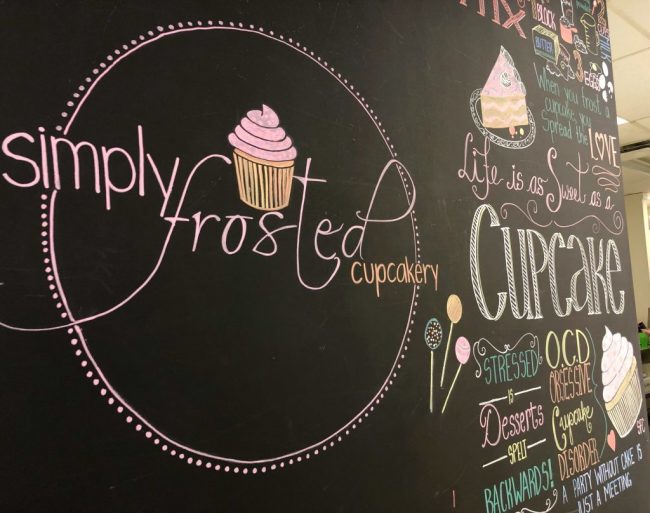 simply
frosted
cupcakery
MIX
BLOCK
BUTTER
3
EGGS
When you frost a
cupcake, you
spread the
LOVE
Life is as Sweet as a
CUPCAKE
STRESSED
is
Desserts
SPELT
BACKWARDS!
O.C.D
OBSESSIVE
Cupcake
DISORDER
A PARTY WITHOUT CAKE IS
JUST A MEETING